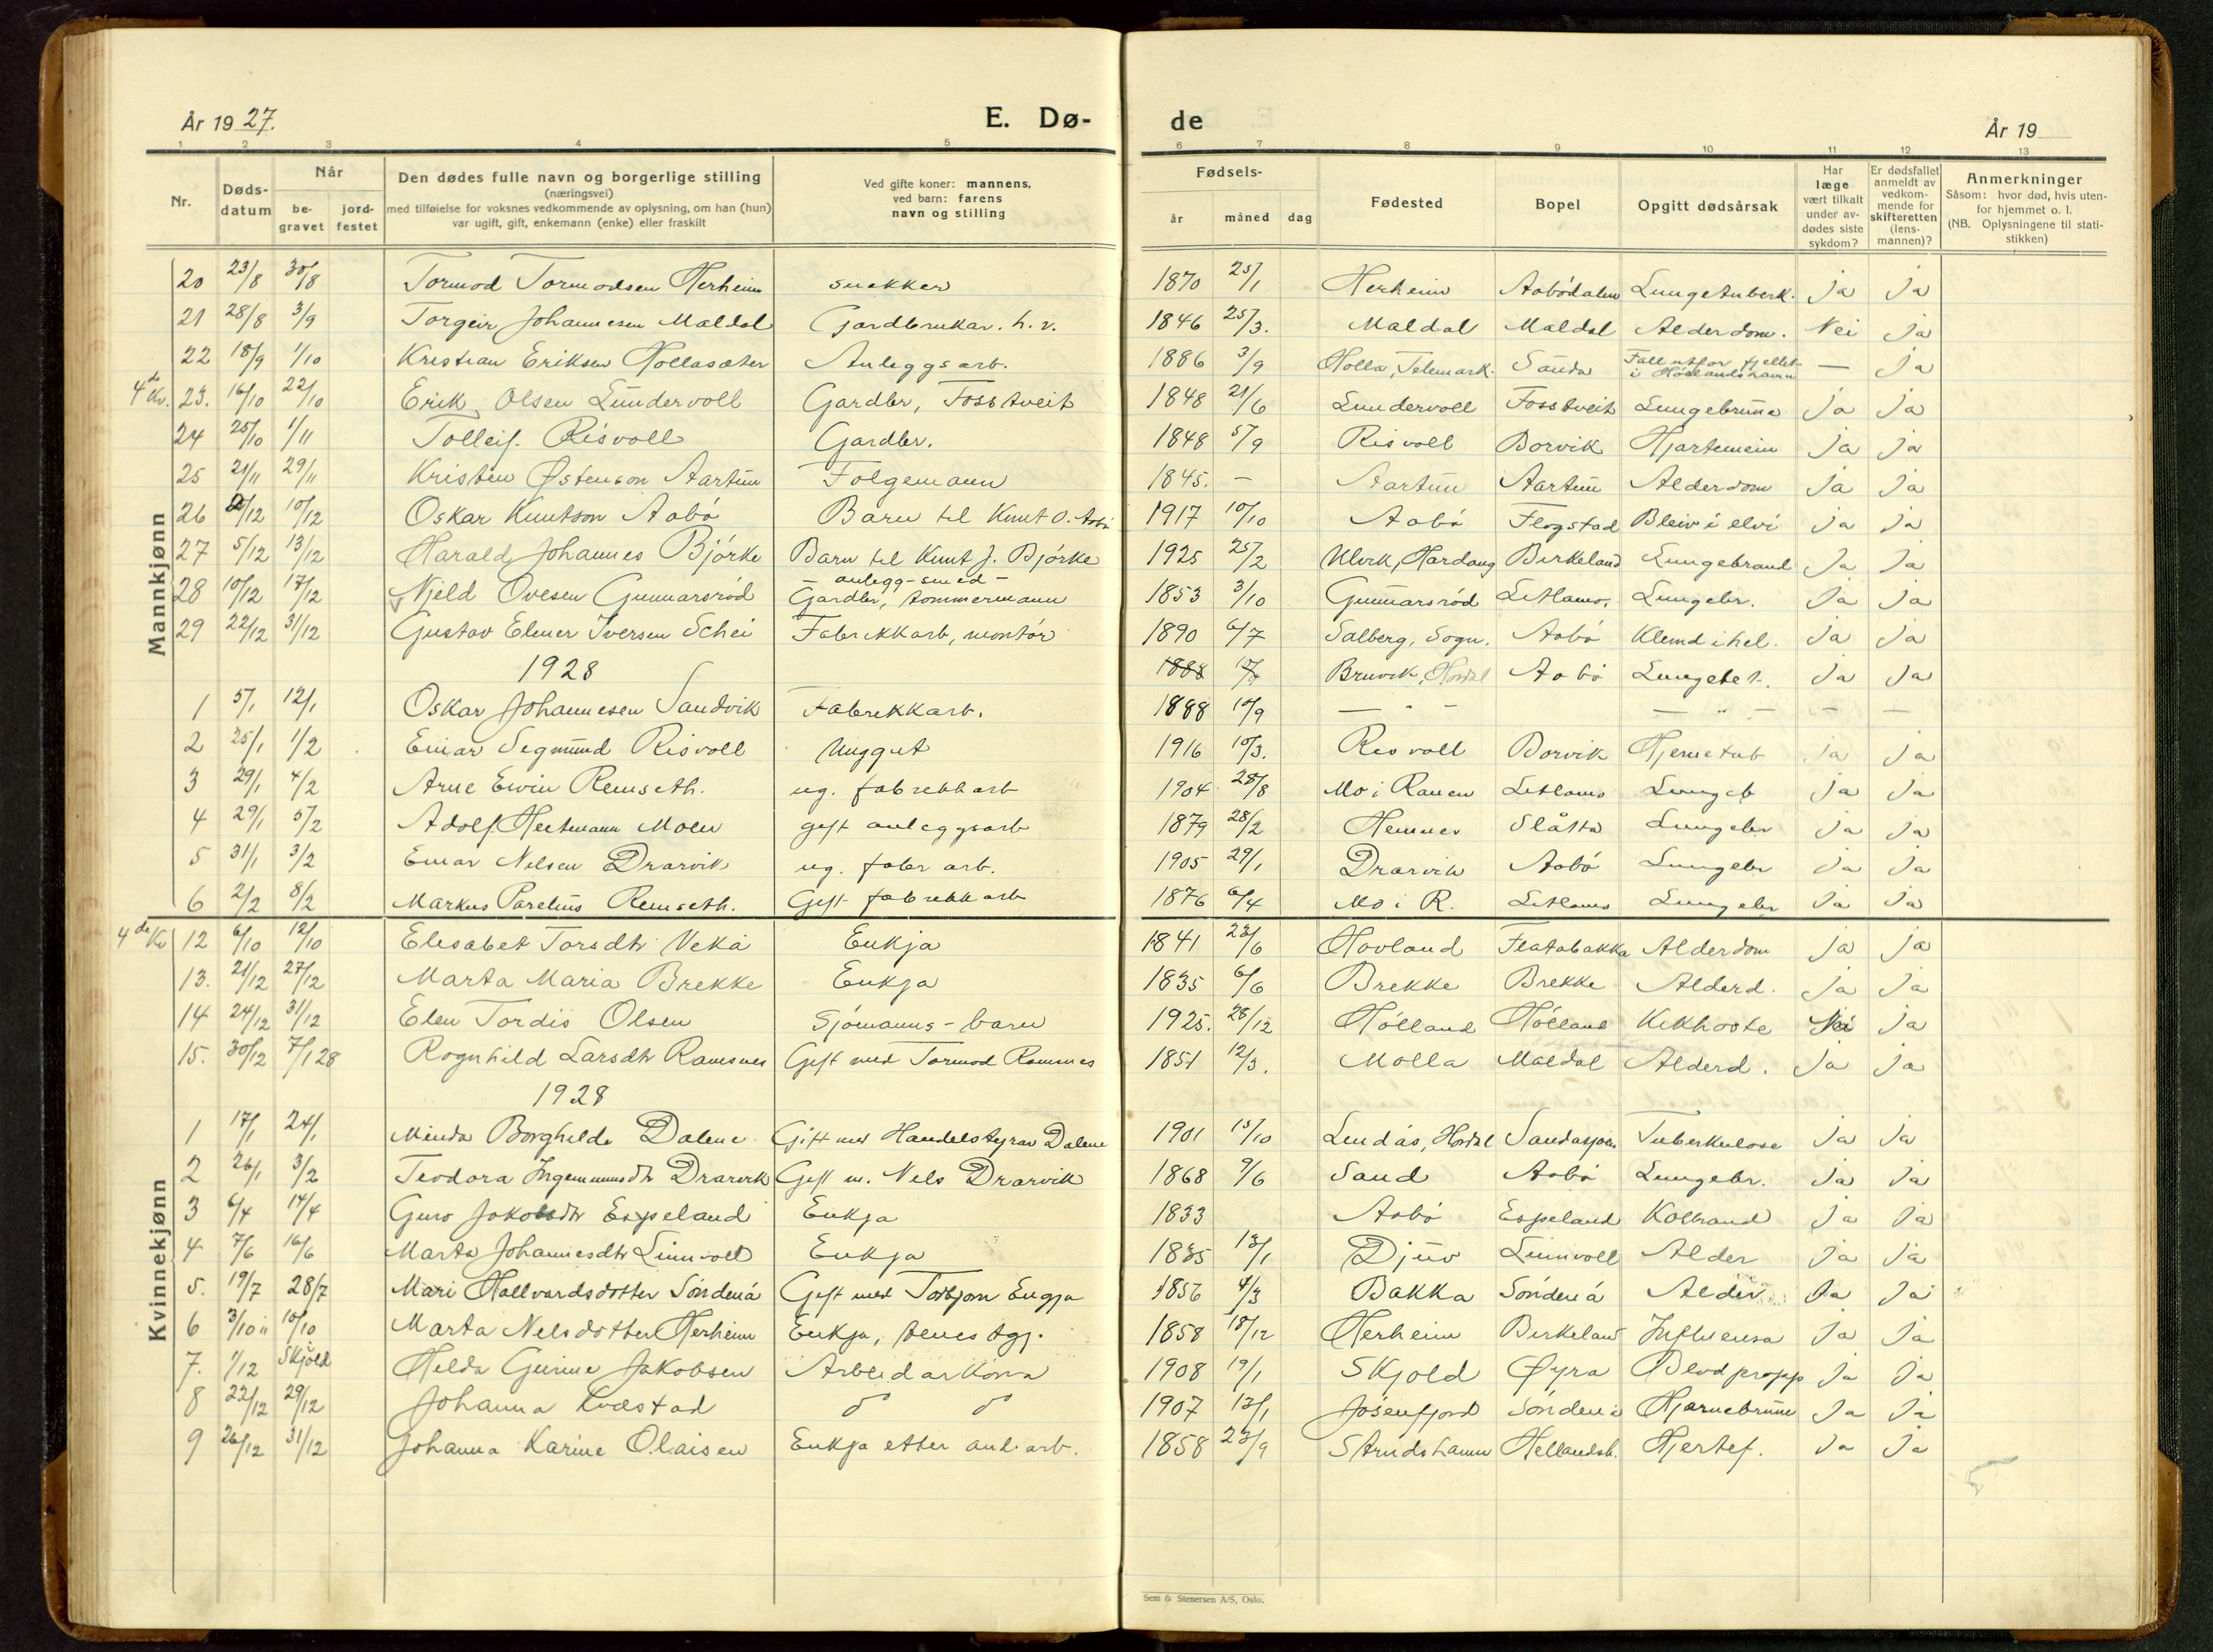 År 1927.
E. Dø-
de
År 19
1 2 3 4 5 6 7 8 9 10 11 12 13
Nr.
Døds-
datum
Når
be-
gravet
jord-
festet
Den dødes fulle navn og borgerlige stilling
(næringsvei)
med tilføielse for voksnes vedkommende av oplysning, om han (hun)
var ugift, gift, enkemann (enke) eller fraskilt
Ved gifte koner: mannens,
ved barn: farens
navn og stilling
Fødsels-
år måned dag
Fødested
Bopel
Opgitt dødsårsak
Har
læge
vært tilkalt
under av-
dødes siste
sykdom?
Er dødsfallet
anmeldt av
vedkom-
mende for
skifteretten
(lens-
mannen)?
Anmerkninger
Såsom: hvor død, hvis uten-
for hjemmet o. l.
(NB. Oplysningene til stati-
stikken)
Mannkjønn
20 23/8 30/8 Tormod Tormodsen Herheim snekker 1870 25/1 Herheim Aabødalen Lungetuberk. Ja Ja
21 28/8 3/9 Torgeir Johannesen Maldal Gardbrukar. h. v. 1846 25/3. Maldal Maldal Alderdom. Nei Ja
22 18/9 1/10 Kristian Eriksen Hollasæter Anleggsarb. 1886 3/9 Holla, Telemark. Sanda Fall utfor fjellet i Høllandshamn — Ja
4de Kv. 23. 16/10 22/10 Erik Olsen Lundervoll Gardbr, Fosstveit 1848 21/6 Lundervoll Fosstveit Lungebrune Ja Ja
24 25/10 1/11 Tolleif. Risvoll Gardbr. 1848 5/9 Risvoll Borvik Hjartemein Ja Ja
25 21/11 29/11 Kristen Østenson Aartun Folgemann 1845. — Aartun Aartun Alderdom Ja Ja
26 /12 10/12 Oskar Knutson Aabø Barn til Knut O. Aabø 1917 10/10 Aabø Flogstad Bleiv i elvi Ja Ja
27 5/12 13/12 Harald Johannes Bjørke Barn til Knut J. Bjørke 1925 25/2 Ulvik, Hardang Birkeland Lungebrand Ja Ja
— anlegg-smed —
28 10/12 17/12 Njeld Ovesen Gunnarsrød Gardbr, tommermann 1853 3/10 Gunnarsrød Litlamo. Lungebr. Ja Ja
29 22/12 31/12 Gustav Elmer Iversen Schei Fabrikkarb, montør 1890 6/7 Salberg, Sogn. Aabø Klemd ihel. Ja Ja
1928
1888 Bruvik, Hordal Aabø Lungebet. Ja Ja
1 5/1 12/1 Oskar Johannesen Sandvik Fabrikkarb. 1888 10/9 — " — — " — — —
2 25/1 1/2 Einar Segmund Risvoll Unggut 1916 10/3. Risvoll Borvik Hjernetub Ja Ja
3 29/1 4/2 Arne Ewin Remseth. ug. fabrekkarb 1904 28/8 Mo i Ranen Litlamo Lungeb Ja Ja
4 29/1 5/2 Adolf Hertmann Moen gift anleggsarb 1879 28/2 Hemnes Slåtta Lungebr Ja Ja
5 31/1 3/2 Einar Nilsen Drarvik ug. fabr arb. 1905 29/1 Drarvik Aabø Lungebr Ja Ja
6 2/2 8/2 Markus Parelius Remseth. Gift fabrekkarb 1876 6/4 Mo i R. Litlamo Lungebr Ja Ja
Kvinnekjønn
4de Kv 12 6/10 12/10 Elesabet Torsdtr Vekå Enkja 1841 23/6 Hovland Flatabakka Alderdom Ja Ja
13. 21/12 27/12 Marta Maria Brekke Enkja 1835 6/6 Brekke Brekke Alderd. Ja Ja
14 24/12 31/12 Elen Tordis Olsen Sjømanns-barn 1925. 28/12 Hølland Hølland Kikhoste Nei Ja
15. 30/12 7/1 28 Rognhild Larsdtr Ramsnes Gift med Tormod Ramsnes 1851 12/3. Molla Maldal Alderd. Ja Ja
1928
1 17/1 24/1 Minda Borghilde Dalene Gift med Handelstyrar Dalene 1901 15/10 Lindås, Hordal Sandasjøen Tuberkulose Ja Ja
2 26/1 3/2 Teodora Ingemunsdtr Drarvik Gift m. Nils Drarvik 1868 9/6 Sand Aabø Lungebr. Ja Ja
3 6/4 14/4 Guro Jakobsdtr Espeland Enkja 1833 Aabø Espeland Kolbrand Ja Ja
4 7/6 16/6 Marta Johannesdtr Linnvoll Enkja 1835 13/1 Djuv Linnvoll Alder Ja Ja
5. 19/7 28/7 Mari Hallvardsdotter Søndenå Gift med Torbjørn Engja 1856 4/3 Bakka Søndenå Alder Ja Ja
6 3/10 10/10 Marta Nelsdotter Herheim Enkja, tenestgj. 1858 18/12 Herheim Birkeland Influensa Ja Ja
7. 1/12 Skjold Helda Gurine Jakobsen Arbeidarkona 1908 19/1 Skjold Øyra Blodpropp Ja Ja
8 22/12 29/12 Johanna Kvæstad " " 1907 13/1 Jøsenfjord Søndenå Hjarnebrune Ja Ja
9 26/12 31/12 Johanna Karine Olaisen Enkja etter anl. arb. 1858 23/9 Strudshamn Hellandsb. Hjertef. Ja Ja
Sem & Stenersen A/S, Oslo.